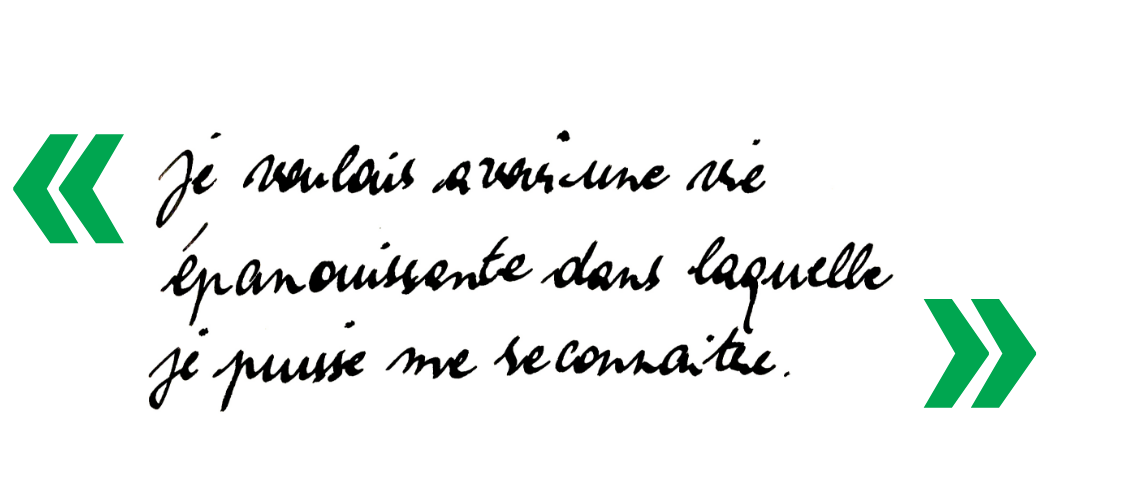 « je voulais avoir une vie
épanouissante dans laquelle
je puisse me reconnaitre. »